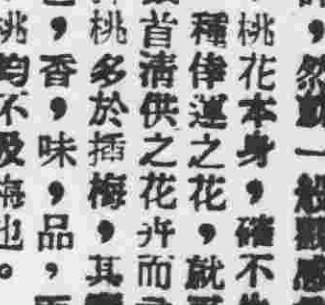 ，然就一般觀感
桃花本身，確不
種倖運之花，就
首清供之花卉而
桃多於插梅，其
，香，味，品，
桃均不及梅也。